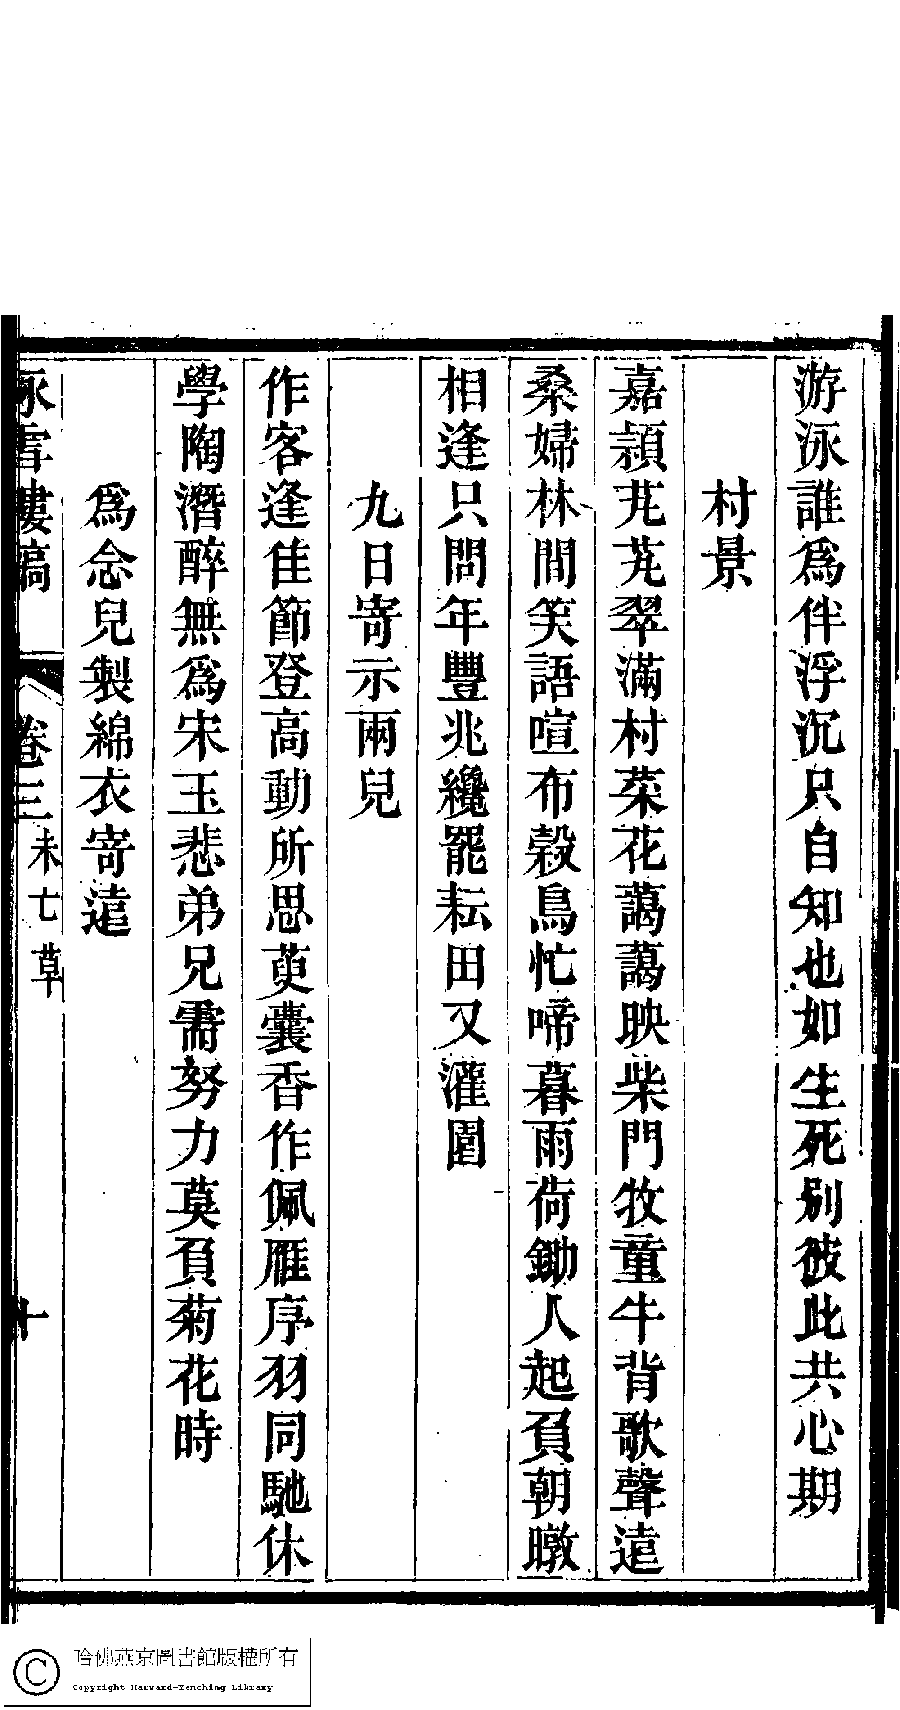 游泳誰爲伴浮沉只自知也如生死別彼此共心期
村景
嘉穎芃芃翠滿村菜花藹藹映柴門牧童牛背歌聲遠
桑婦林間笑語喧布穀鳥忙啼暮雨荷鋤人起負朝暾
相逢只問年豐兆纔罷耘田又灌園
九日寄示兩兒
作客逢佳節登高動所思萸囊香作佩雁序羽同馳休
學陶潛醉無爲宋玉悲弟兄需努力莫負菊花時
爲念兒製綿衣寄遠
詠雪樓稿 卷三 未七草 十
哈佛燕京圖書館版權所有
Copyright Harvard-Yenching Library